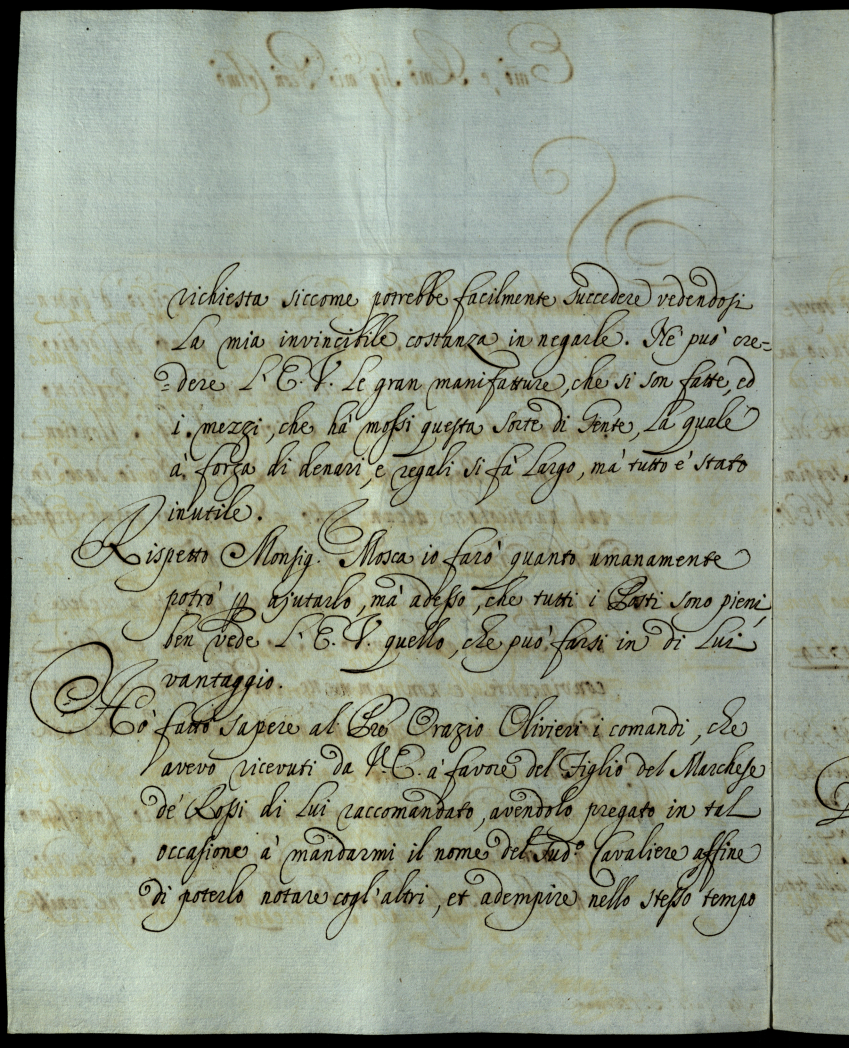 richiesta siccome potrebbe facilmente succedere vedendosi
La mia invincibile costanza in negarle. Nè può cre=
=dere L'E.V. Le gran manifatture, che si son fatte, ed
i mezzi, che hà mossi questa Sorte di Gente, La quale
à forza di denari, e regali si fà Largo, mà tutto è stato
inutile.
Rispetto Monsig.r Mosca io farò quanto umanamente
potrò p ajutarlo, mà adesso, che tutti i Posti sono pieni
ben vede L'E.V. quello, che può farsi in di Lui
vantaggio.
Hò fatto sapere al Pre Orazio Olivieri i comandi, che
avevo ricevuti da V.E. à favore del Figlio del Marchese
de' Rossi di Lui raccomandato, avendolo pregato in tal
occasione à mandarmi il nome del sud.o Cavaliere affine
di poterlo notare cogl'altri, et adempire nello stesso tempo